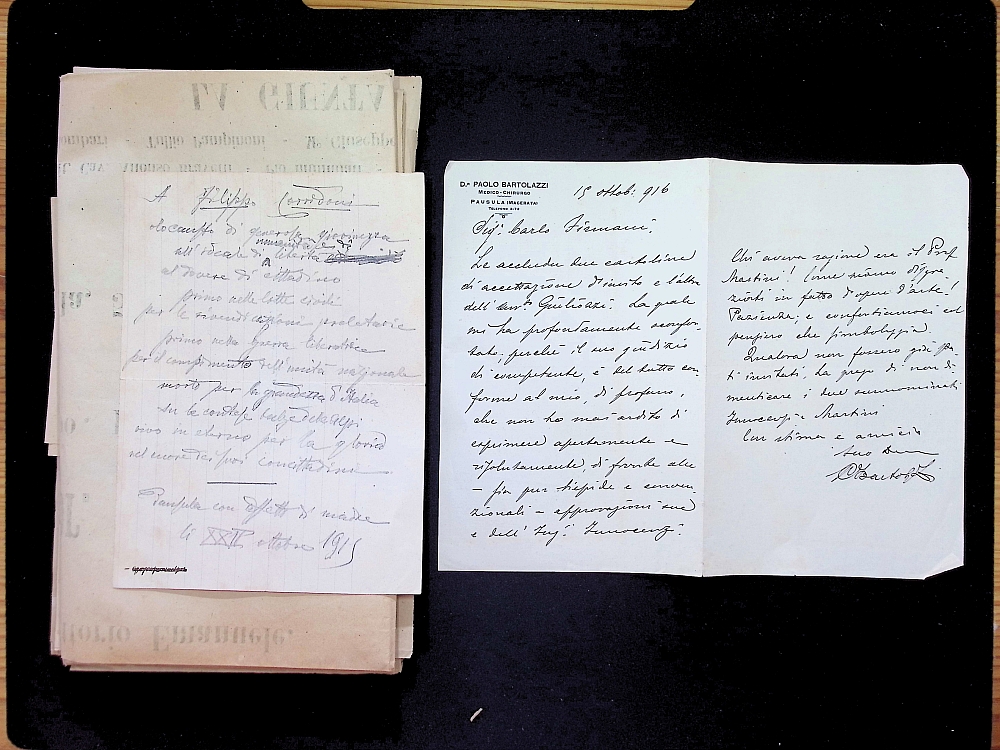 LA GIUNTA
A Filippo Corridoni
olocausto di generosa giovinezza
umanità e di
all'ideale di libertà
al dovere di cittadino
primo nelle lotte civili
per le rivendicazioni proletarie
primo nella guerra liberatrice
per il compimento dell'unità nazionale
morto per la grandezza d'Italia
su le contese delle Alpi
vivo in eterno per la gloria
nel cuore dei suoi concittadini
Pausula con affetto di madre
li XXIV ottobre 1915
Vittorio Emanuele.
Dr. PAOLO BARTOLAZZI
MEDICO-CHIRURGO
PAUSULA (MACERATA)
TELEFONO
15 ottob: 916
Sigr. Carlo Firmani,
Le accludo due cartoline
di accettazione d'invito e l'altra
dell' Giuliozzi. La quale
mi ha profondamente sconfor-
tato, perché il suo giudizio
di competente, è del tutto con-
forme al mio, di profano,
che non ho mai ardito di
esprimere apertamente e
risolutamente, di fronte alle
– sia pur tiepide e conven-
zionali – approvazioni sue
e dell' Ing. Innocenzi.
Chi aveva ragione era il Prof
Martini! Come siamo disgra-
ziati in fatto d'opere d'arte!
Pazienza; e confortiamoci col
pensiero che simboleggia.
Qualora non fossero già sta-
ti invitati, La prego di non di-
menticare i due summominati
Innocenzi e Martini
Con stima e amicizia
Suo Dev
PBartolazzi